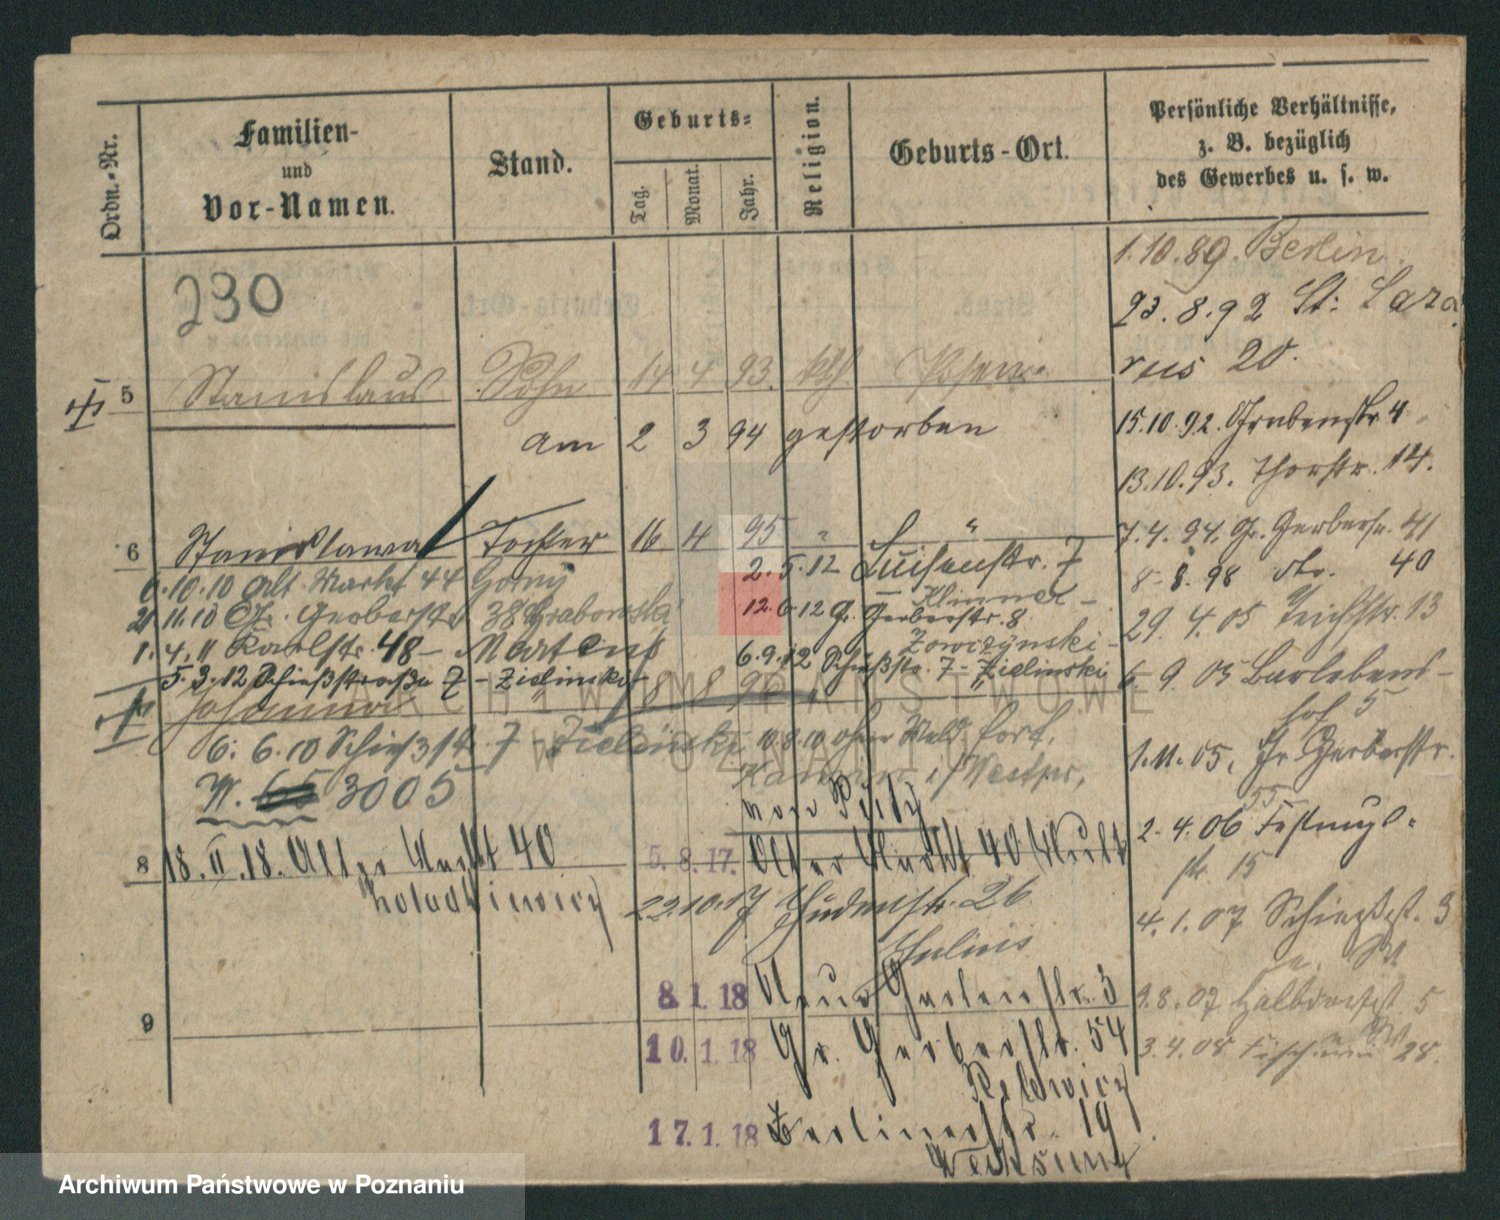 Ordn.-Nr.
Familien-
und
Vor-Namen.
Stand.
Geburts-
Tag.
Monat.
Jahr.
Religion.
Geburts-Ort.
Persönliche Verhältnisse,
z. B. bezüglich
des Gewerbes u. s. w.
230
1.10.89. Berlin.
23.8.92 St: Laza
rus 20.
5 Stanislaus Sohn 14 4 93. kth. Posen
am 2 3 94 gestorben
15.10.92. Grabenstr. 4
13.10.93. Thorstr. 14.
6 Stanislawa Tochter 16 4 95 " "
7.4.94. Gr. Gerberstr. 41
8.8.98 do. 40
6.10.10 Alt. Markt 44 Gorny
2.5.12 Luisenstr. 7
21.11.10 Gr. Gerberstr. 38 Grabowski
12.6.12 Gr. Gerberstr. 8
29.4.05 Teichstr. 13
1.4.11 Karlstr. 48 - Martens
6.9.12 Schießstr. 7 - Zielinski
5.3.12 Schießstraße 7 - Zielinski
6.9.05 Barlebens-
hof 5
Johanna 8 8 96
6.6.10 Schießstr. 7 Zielinski
fort.
1.11.05, Gr. Gerberstr.
55
W. 65 3005
i/Westpr,
2.4.06
str. 15
8 18.II.18. Alter Markt 40
5.8.17. Alter Markt 40
22.10.17 Judenstr. 26
4.1.07 Schießst. 3
8.1.18 Neue Gartenstr. 3
9.8.07 Halbdorfst 5
9
10.1.18 Gr. Gerberstr. 54
3.4.08. 28.
17.1.18 Berlinerstr. 19
ARCHIWUM PAŃSTWOWE
W POZNANIU
Archiwum Państwowe w Poznaniu